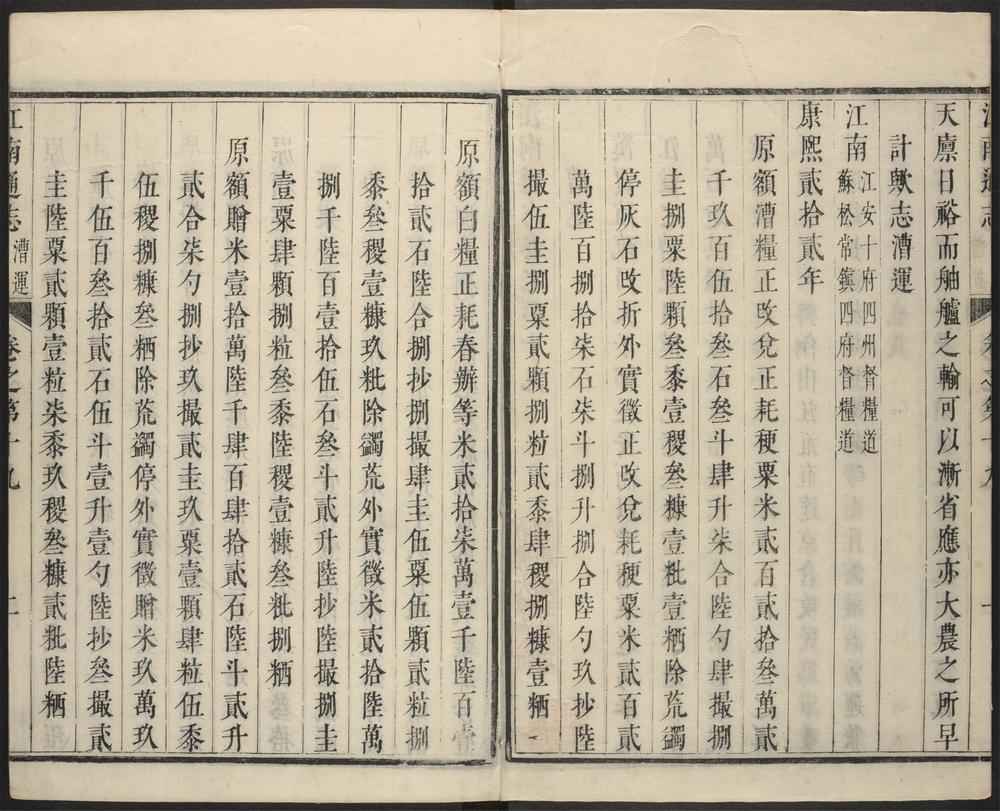 江南通志 卷之第十九 一
天廪日裕而舳艫之輸可以漸省應亦大農之所早
計歟志漕運
江南江安十府四州督糧道
蘇松常鎮四府督糧道
康熙貳拾貳年
原額漕糧正改兌正耗稉粟米貳百貳拾叁萬貳
千玖百伍拾叁石叁斗肆升柒合陸勺肆撮捌
圭捌粟陸顆叁黍壹稷叁糠壹粃壹粞除荒蠲
停灰石改折外實徵正改兌耗稉粟米貳百貳
萬陸百捌拾柒石柒斗捌升捌合陸勺玖抄陸
撮伍圭捌粟貳顆捌粒貳黍肆稷捌糠壹粞
原額白糧正耗舂辦等米貳拾柒萬壹千陸百壹
拾貳石陸合捌抄捌撮肆圭伍粟伍顆貳粒捌
黍叁稷壹糠玖粃除蠲荒外實徵米貳拾陸萬
捌千陸百壹拾伍石叁斗貳升陸抄陸撮捌圭
壹粟肆顆捌粒叁黍陸稷壹糠叁粃捌粞
原額贈米壹拾萬陸千肆百肆拾貳石陸斗貳升
貳合柒勺捌抄玖撮貳圭玖粟壹顆肆粒伍黍
伍稷捌糠叁粞除荒蠲停外實徵贈米玖萬玖
千伍百叁拾貳石伍斗壹升壹勺陸抄叁撮貳
圭陸粟貳顆壹粒柒黍玖稷叁糠貳粃陸粞
江南通志 漕運 卷之第十九 二